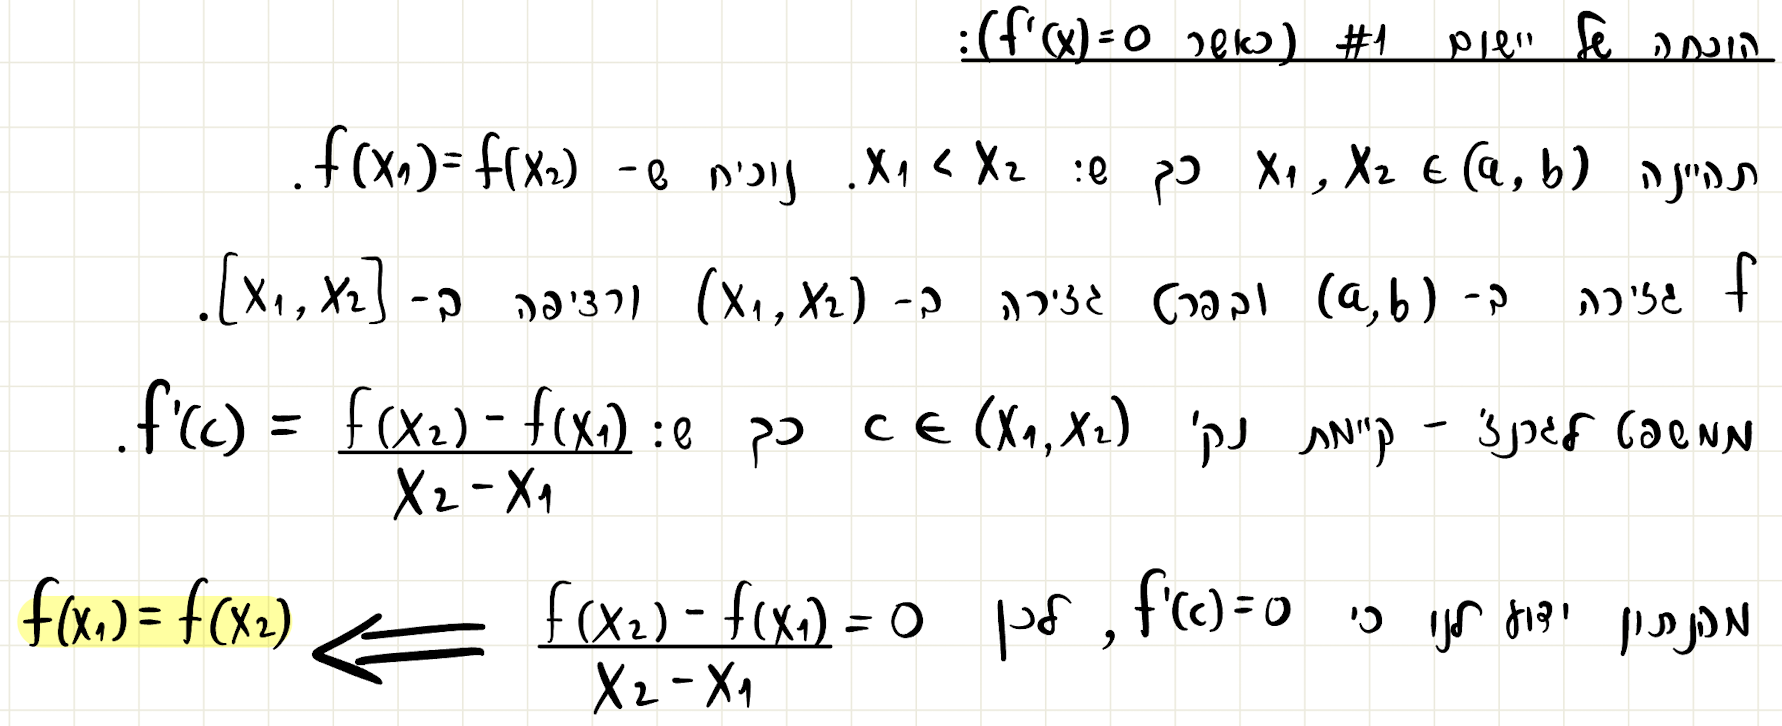 הוכחה של יישום #1 (כאשר f'(x)=0):
תהיינה x₁, x₂ ∈ (a, b) כך ש: x₁ < x₂. נוכיח ש- f(x₁)=f(x₂).
f גזירה ב- (a,b) ובפרט גזירה ב- (x₁, x₂) ורציפה ב- [x₁, x₂].
ממשפט לגרנצ' - קיימת נק' c ∈ (x₁, x₂) כך ש: f'(c) = (f(x₂) - f(x₁))/(x₂ - x₁).
מהנתון ידוע לנו כי f'(c)=0, לכן (f(x₂) - f(x₁))/(x₂ - x₁) = 0 ⟸ f(x₁) = f(x₂)